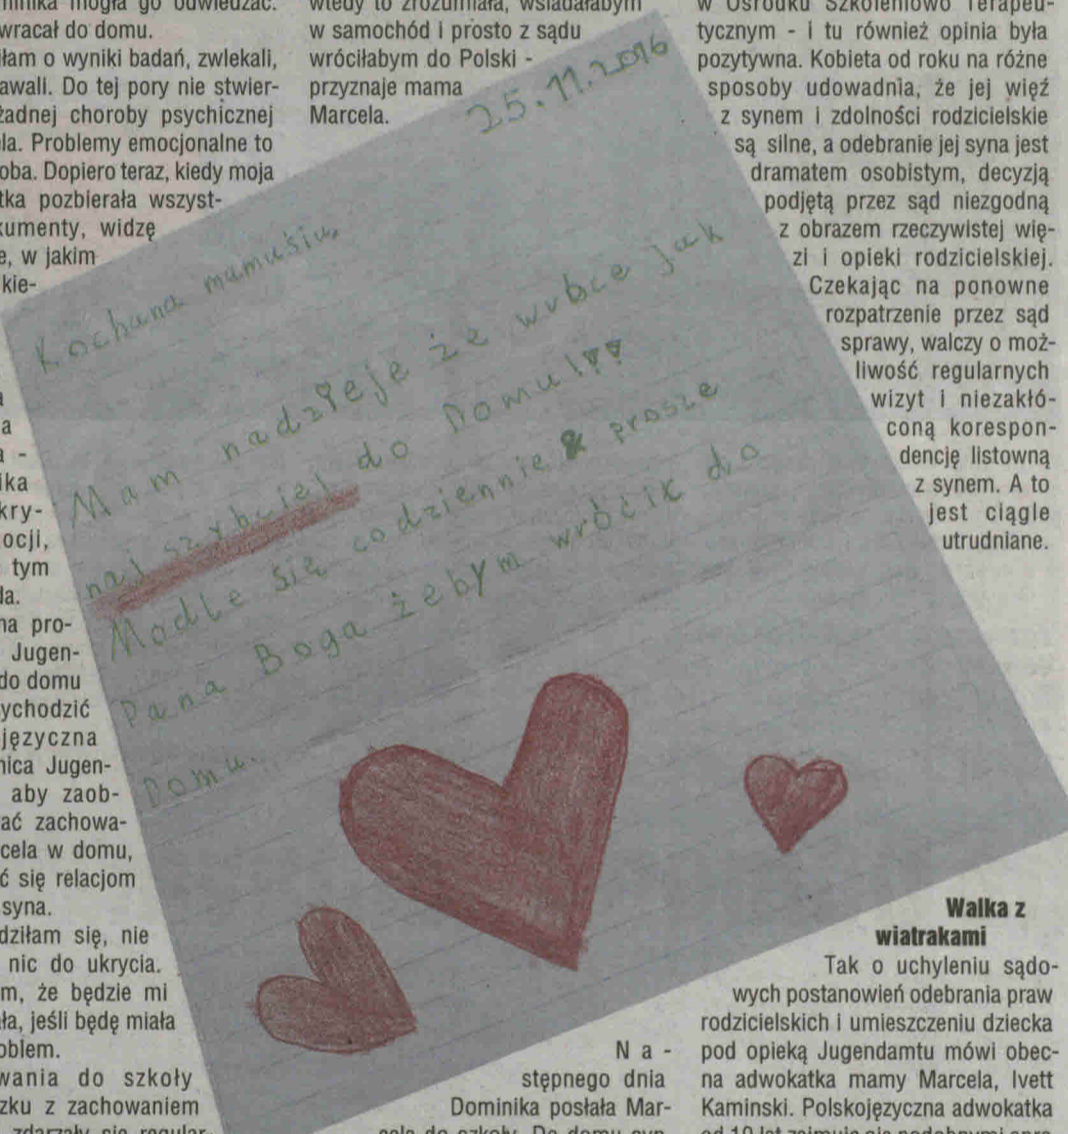 minika mogła go odwiedzać.
wracał do domu.
iłam o wyniki badań, zwlekali,
awali. Do tej pory nie stwier-
żadnej choroby psychicznej
ela. Problemy emocjonalne to
oba. Dopiero teraz, kiedy moja
tka pozbierała wszyst-
kumenty, widzę
e, w jakim
kie-
a
a
a -
ika
kry-
ocji,
tym
da.
na pro-
Jugen-
do domu
ychodzić
języczna
nica Jugen-
aby zaob-
ać zachowa-
cela w domu,
ć się relacjom
syna.
dziłam się, nie
nic do ukrycia.
m, że będzie mi
ała, jeśli będę miała
oblem.
wania do szkoły
zku z zachowaniem
zdarzały się regular-
wtedy to zrozumiała, wsiadałabym
w samochód i prosto z sądu
wróciłabym do Polski -
przyznaje mama
Marcela.
25.11.2016
Kochana mamusiu,
Mam nadzieje że wrbce jak
naj szybciej do Domu!!!
Modle się codziennie & prosze
Pana Boga żebym wrócik do
Domu.
Na-
stępnego dnia
Dominika posłała Mar-
cela do szkoły. Do domu syn
w Ośrodku Szkoleniowo Terapeu-
tycznym - i tu również opinia była
pozytywna. Kobieta od roku na różne
sposoby udowadnia, że jej więź
z synem i zdolności rodzicielskie
są silne, a odebranie jej syna jest
dramatem osobistym, decyzją
podjętą przez sąd niezgodną
z obrazem rzeczywistej wię-
zi i opieki rodzicielskiej.
Czekając na ponowne
rozpatrzenie przez sąd
sprawy, walczy o moż-
liwość regularnych
wizyt i niezakłó-
coną korespon-
dencję listowną
z synem. A to
jest ciągle
utrudniane.
Walka z
wiatrakami
Tak o uchyleniu sądo-
wych postanowień odebrania praw
rodzicielskich i umieszczeniu dziecka
pod opieką Jugendamtu mówi obec-
na adwokatka mamy Marcela, Ivett
Kaminski. Polskojęzyczna adwokatka
od 10 lat zajmuje się podobnymi spra-